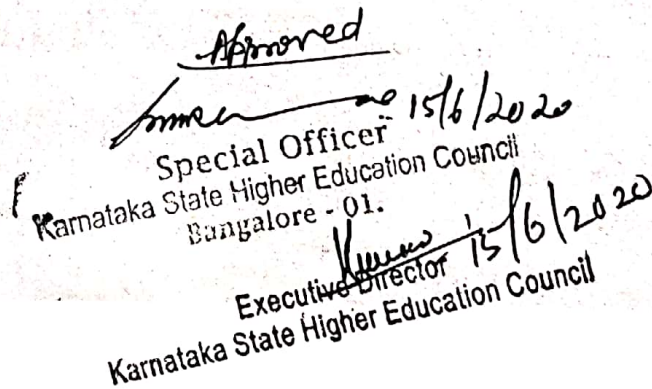 Approved
15/6/2020
Special Officer
Karnataka State Higher Education Council
Bangalore - 01.
15/6/2020
Executive Director
Karnataka State Higher Education Council